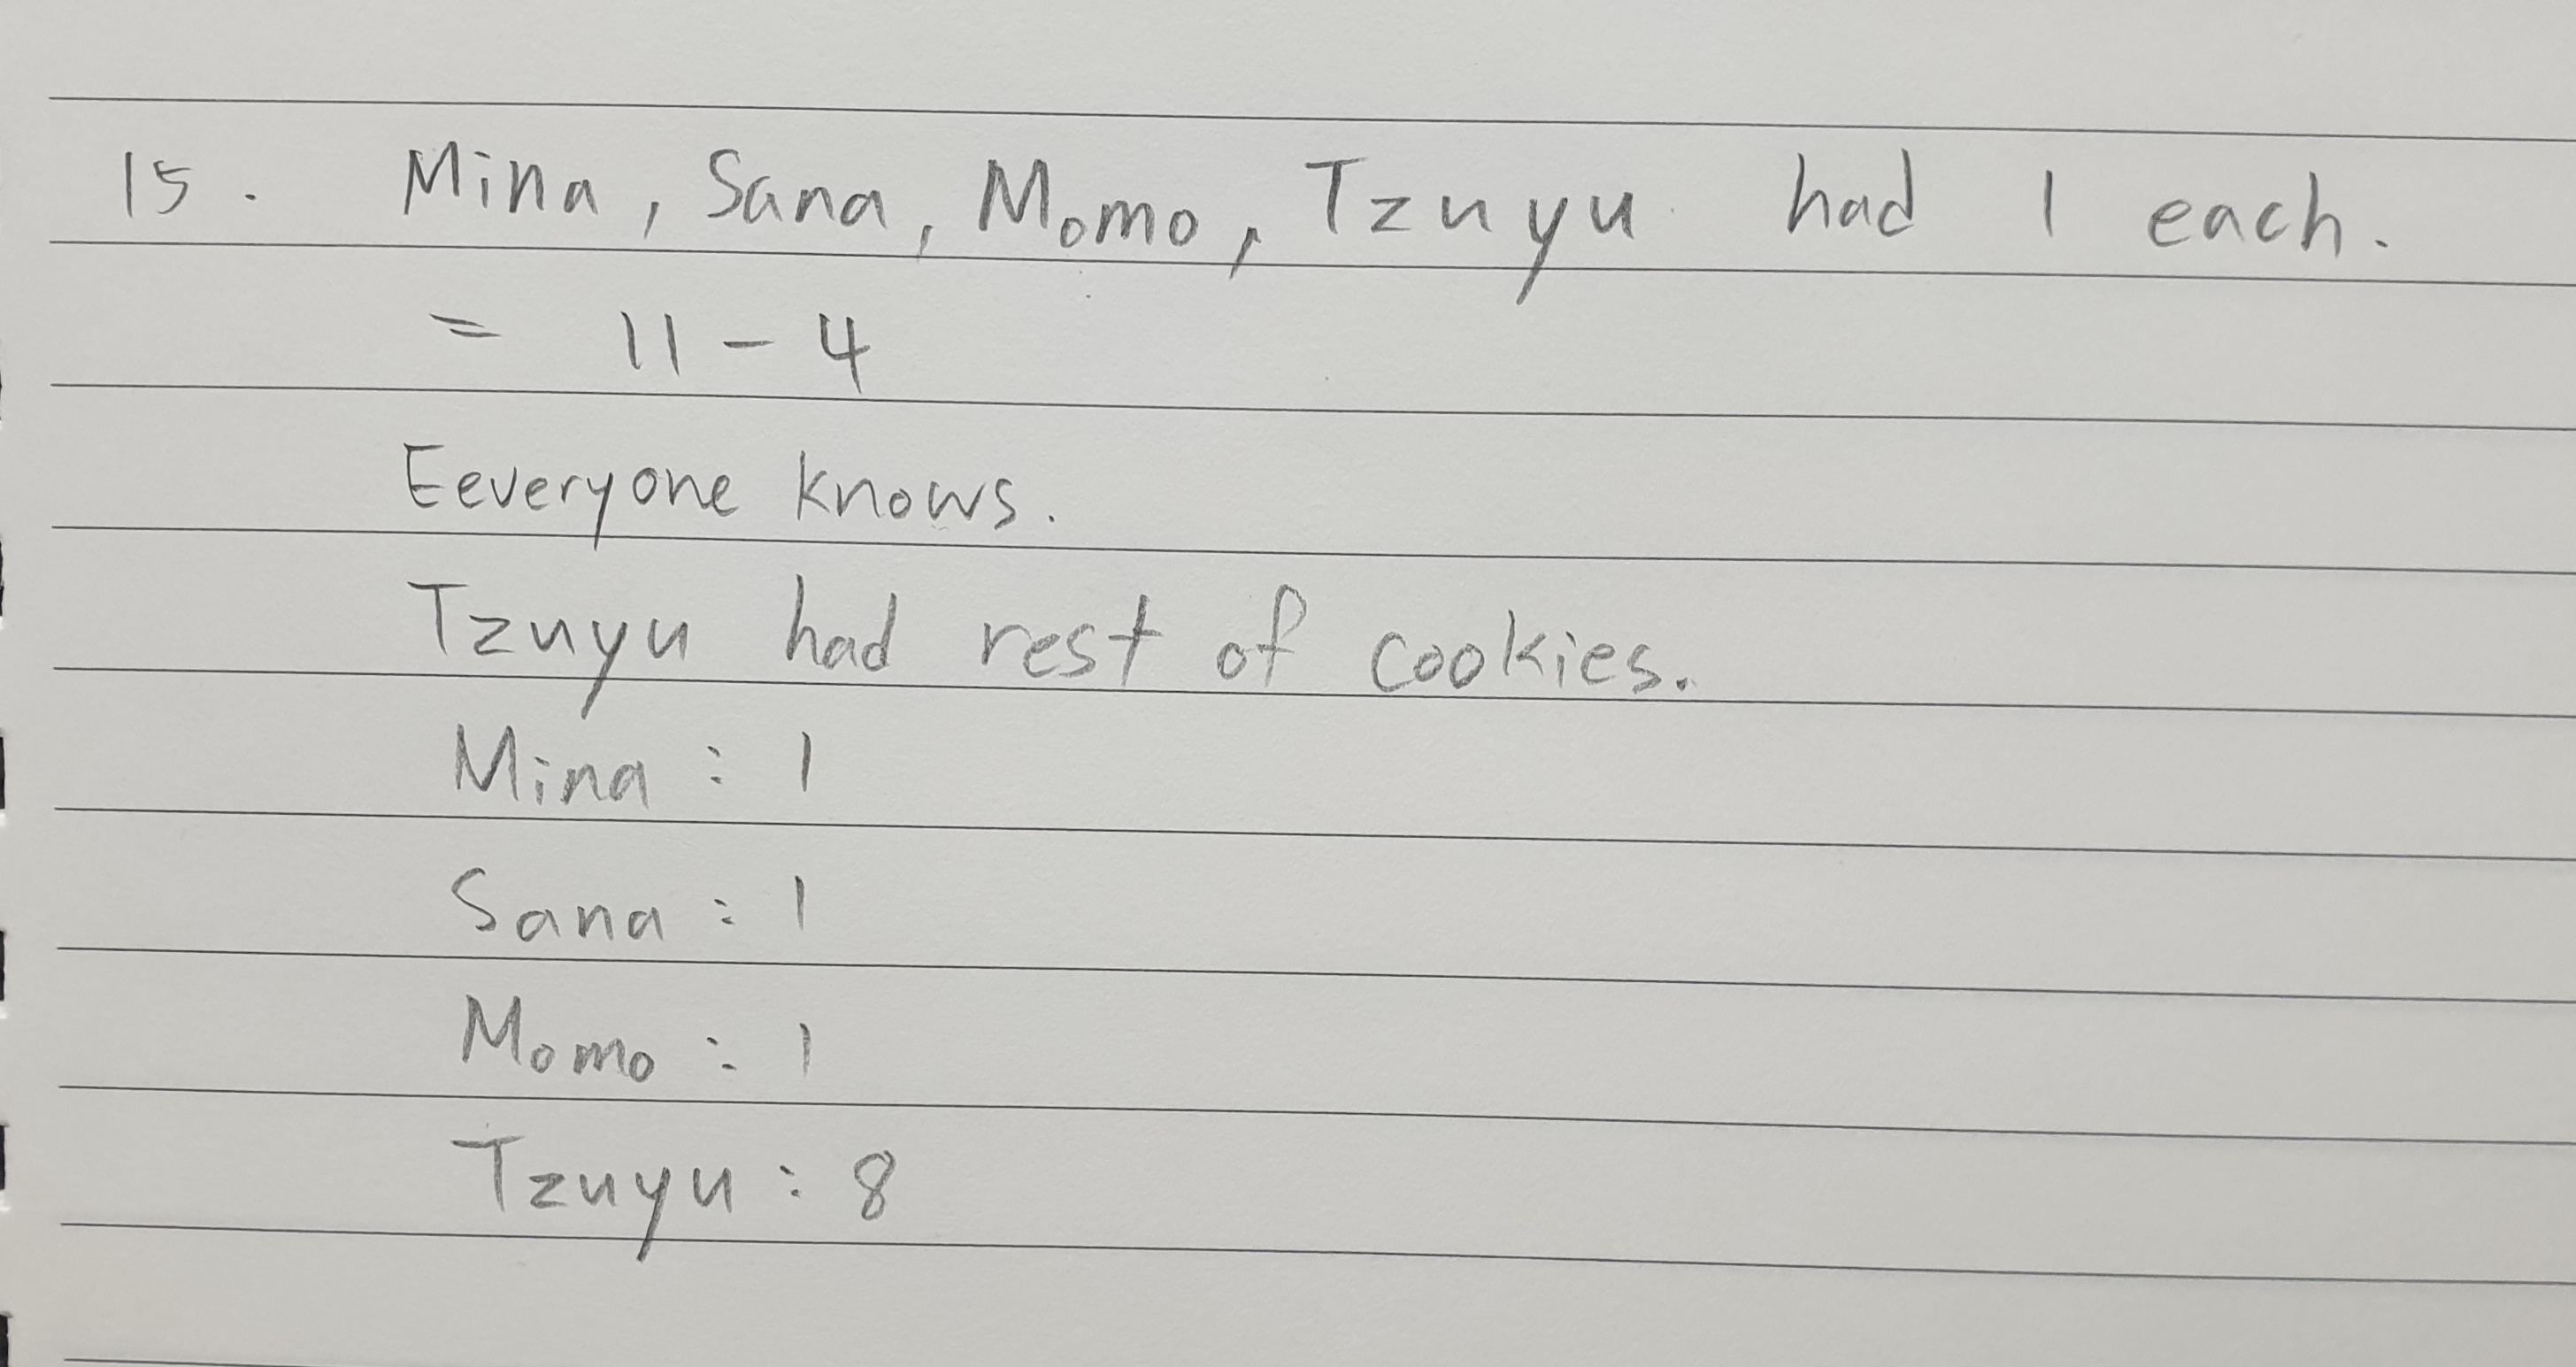 15. Mina, Sana, Momo, Tzuyu had 1 each.
= 11 - 4
Eeveryone knows.
Tzuyu had rest of cookies.
Mina : 1
Sana : 1
Momo : 1
Tzuyu : 8